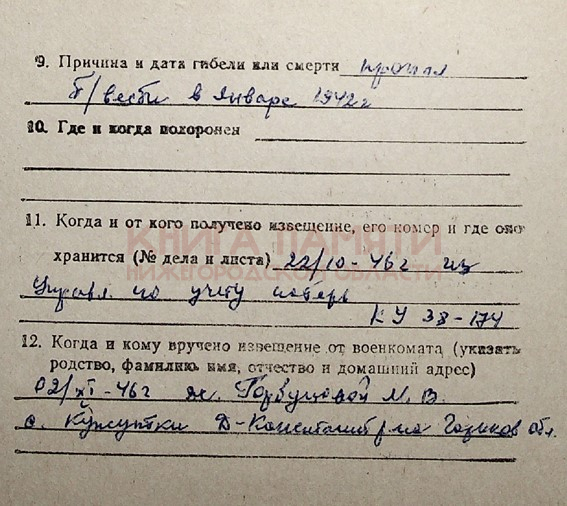 9. Причина и дата гибели или смерти пропал
б/вести в январе 1942 г
10. Где и когда похоронен
11. Когда и от кого получено извещение, его номер и где оно
КНИГА ПАМЯТИ
хранится (№ дела и листа) 22/10-46 г из
НИЖЕГОРОДСКОЙ ОБЛАСТИ
Управл. по учету потерь
КУ 38-174
12. Когда и кому вручено извещение от военкомата (указать
родство, фамилию имя, отчество и домашний адрес)
02/XI-46 г ж. Горбуновой М. В.
с. Кужутки Д-Константин р-на Горьков обл.